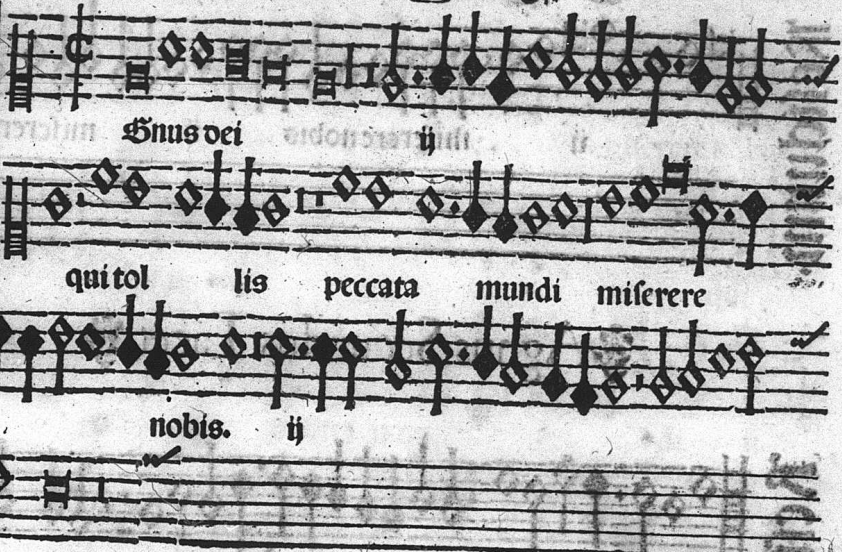 Gnus dei ij
qui tol lis peccata mundi miserere
nobis. ij